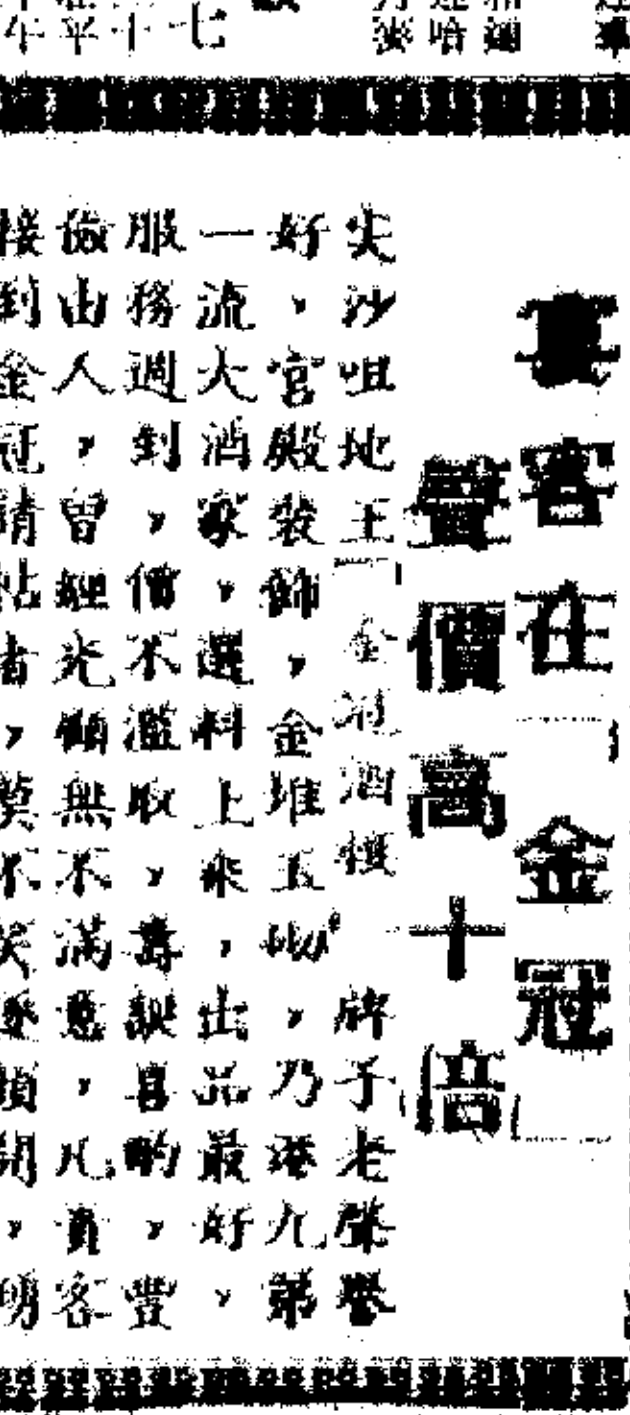 宴客在「金冠」
聲價高十倍
尖沙咀地王「金冠酒樓」牌子老聲譽
好，宮殿裝飾，金堆玉砌，乃港九第
一流大酒家，選料上乘，出品最好，
服務週到，價不濫取，壽誕喜酌，豐
儉由人，曾經光顧無不滿意，凡貴客
接到金冠請帖者，莫不笑逐顏開，
七十平